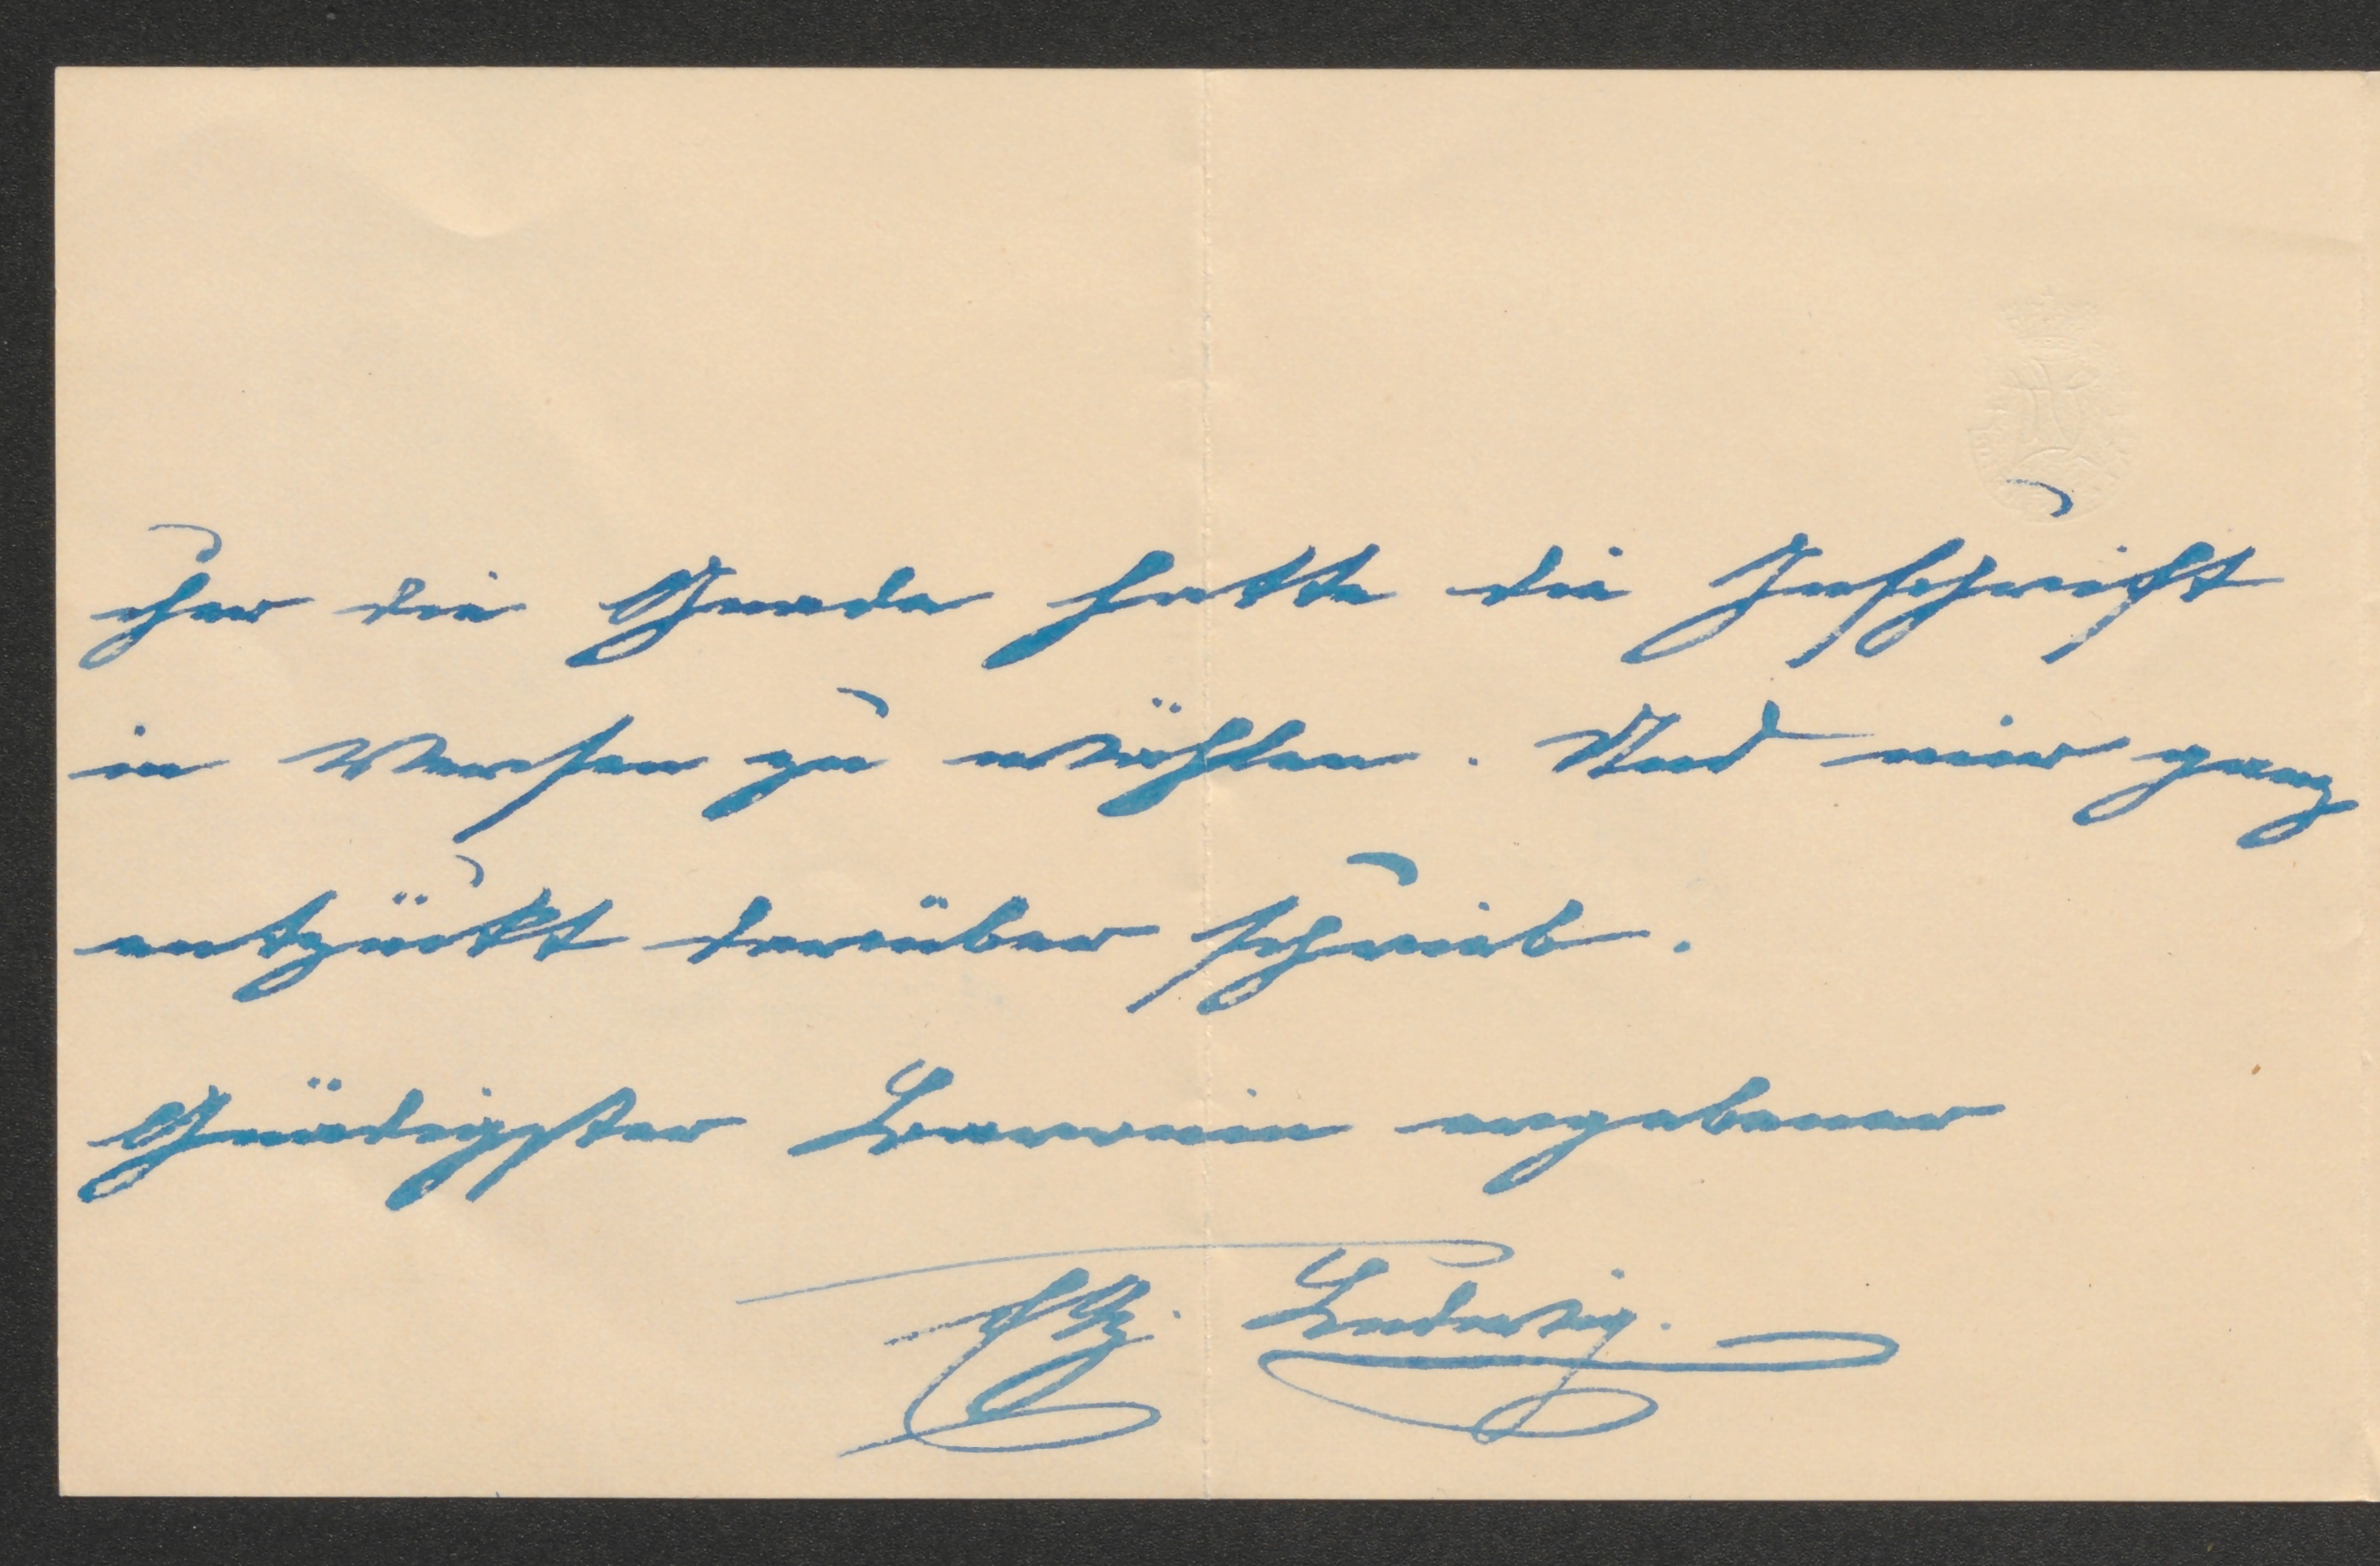 ihr die Gnade hatte die Inschrift
in Versen zu wählen. Und mir ganz
entzückt darüber schrieb.
Gnädigster Baronin ergebener
EHz. Ludwig.